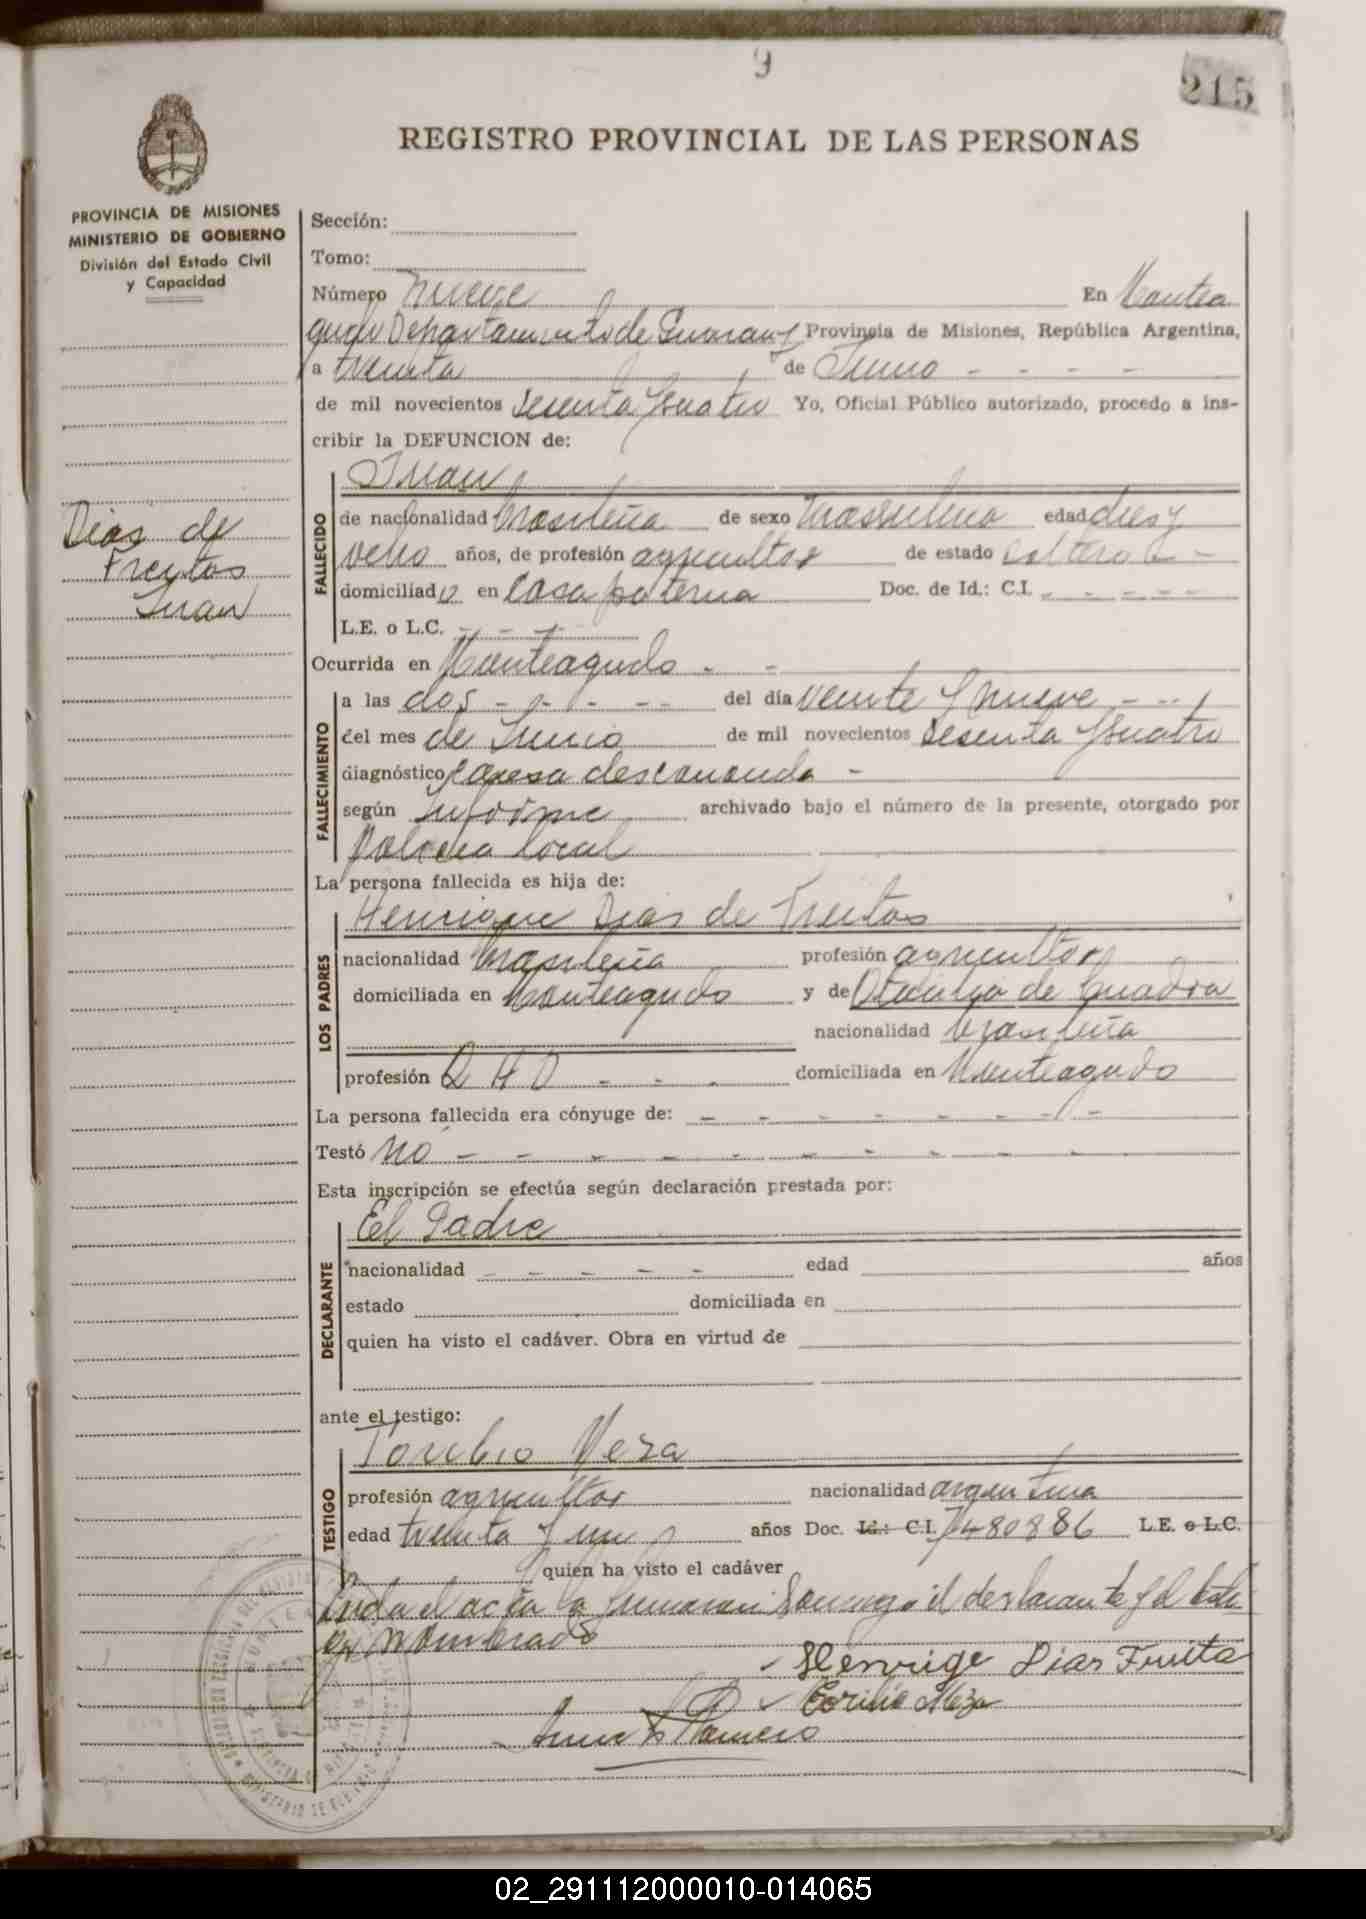 9
215
REGISTRO PROVINCIAL DE LAS PERSONAS
PROVINCIA DE MISIONES
MINISTERIO DE GOBIERNO
División del Estado Civil
y Capacidad
Sección:
Tomo:
Número nueve En Montea
gudo Departamento de Guarany Provincia de Misiones, República Argentina,
a treinta de Junio - - - -
de mil novecientos Sesenta y cuatro Yo, Oficial Público autorizado, procedo a ins-
cribir la DEFUNCION de:
Dias de
Freytas
Juan
FALLECIDO
Juan
de nacionalidad brasileña de sexo masculino edad dies y
ocho años, de profesión agricultor de estado soltero -
domiciliado en Casa paterna Doc. de Id.: C.I. - - - - -
L.E. o L.C. - - -
Ocurrida en Monteagudo - -
FALLECIMIENTO
a las dos - - - - - del día veinte y nueve - - -
del mes de Junio de mil novecientos Sesenta y cuatro
diagnóstico causa desconocida -
según Informe archivado bajo el número de la presente, otorgado por
Policia local
La persona fallecida es hija de:
LOS PADRES
Henrique Dias de Freitas
nacionalidad brasileña profesión agricultor
domiciliada en Monteagudo y de de Cuadra
nacionalidad brasileña
profesión Q H D - - - domiciliada en Monteagudo
La persona fallecida era cónyuge de: - - - - - - - -
Testó no - - - - - - - - - -
Esta inscripción se efectúa según declaración prestada por:
DECLARANTE
El Padre
nacionalidad - - - - - edad años
estado domiciliada en
quien ha visto el cadáver. Obra en virtud de
ante el testigo:
TESTIGO
Toribio Meza
profesión agricultor nacionalidad argentina
edad treinta y un años Doc. Id.: C.I. 7480886 L.E. o L.C.
quien ha visto el cadáver
Leida el acta la firmaron conmigo el declarante y el testi
go nombrado
Henrige Dias Fruita
Torilio Meza
Romero
02_291112000010-014065